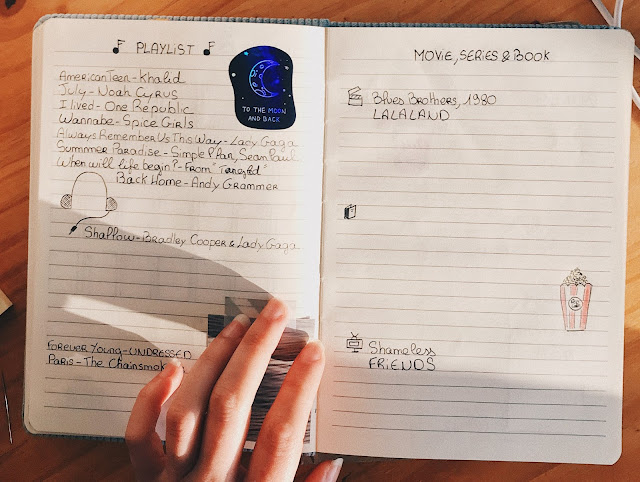 PLAYLIST
American Teen - Khalid
July - Noah Cyrus
I lived - One Republic
Wannabe - Spice Girls
Always Remember Us This Way - Lady Gaga
Summer Paradise - Simple Plan, Sean Paul
When will life begin? - From "Tangled"
Back Home - Andy Grammer
Shallow - Bradley Cooper & Lady Gaga
FOREVER Young - UNDRESSED
PARIS - The Chainsmok
TO THE MOON
AND BACK
MOVIE, SERIES & BOOK
Blues Brothers, 1980
LALALAND
Shameless
FRIENDS